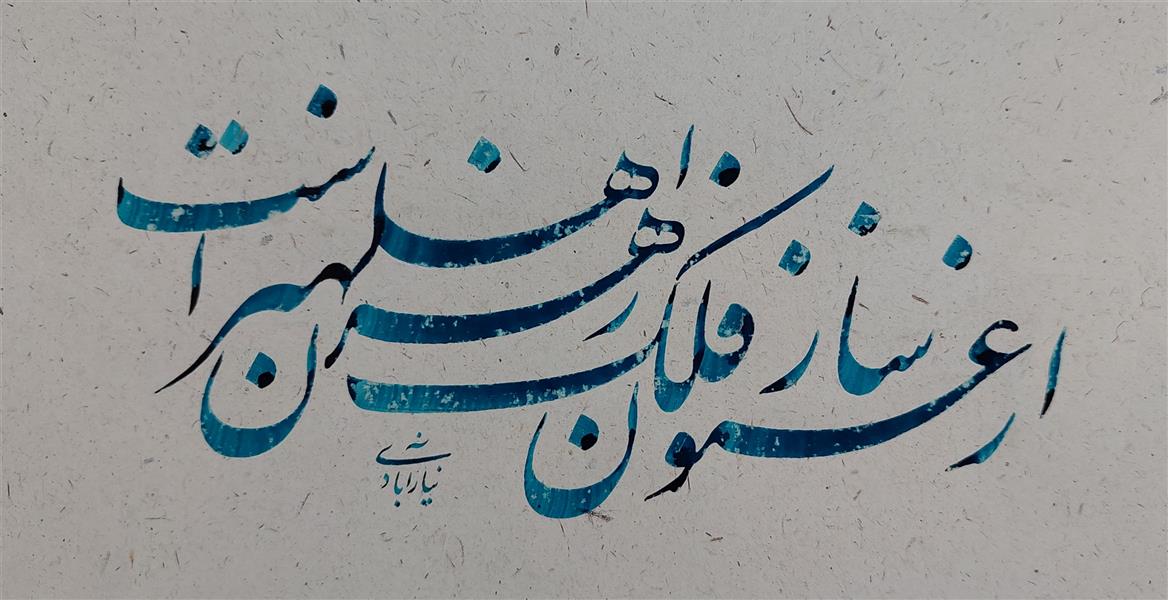 ارغنون ساز فلک رهزن اهل هنر است
نیازآبادی